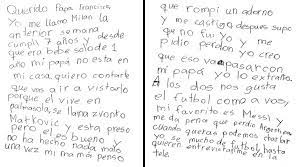 Querido Papa Francisco
Yo me llamo Milan la
anterior semana
cumpli 7 años y desde
que era bebe solo de 1
año mi papá no esta en
mi casa. quiero contarte
que vos air a visitarlo
porque el vive en
palmasola, se llama zvonko
Matković y esta preso
pero el es bueno y
no ha hecho nada malo,
una vez mi mamá penso
que rompi un adorno
y me castigo despues supo
que no fui yo y me
pidio perdon yo creo
que eso va pasar con
mi papá yo lo extraño.
A los dos nos gusta
el futbol como a vos,
mi favorito es Messi y
me da pena que perdio Argentina
cuando quetas podemos hablar
yo se mucho de futbol, hasta
quieren entrevistarme en la
tele.